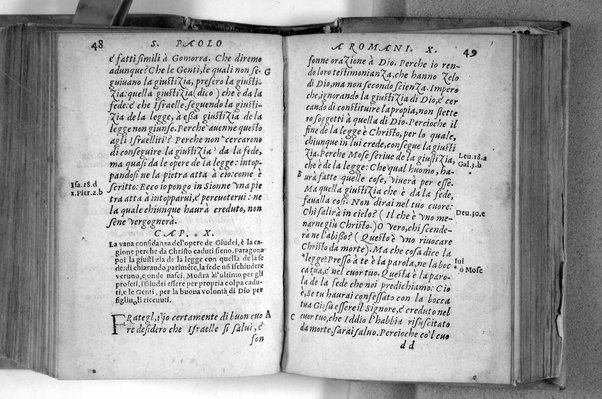 48 S. PAOLO
é fatti simili à Gomorra. Che diremo
adunque? Che le Genti, le quali non se
guiuano la giustizia, presero la giusti- G
zia: quella giustizia (dico) che è da la
fede. è che Israelle seguendo la giusti-
zia de la legge, à essa giustizia de la
legge non giunse. Perche auenne questo
agli Israeliti? Perche non cercarono
di conseguire la giustizia da la fede,
ma quasi da le opere de la legge: intop-
pandosi ne la pietra atta à cio: come è
Isa. 28. d scritto: Ecco io pongo in Sionne vna pie
1. Pier. 2. b tra atta à intopparui, é percuoterui: ne
la quale chiunque haurà creduto, non
sene vergognerà.
CAP. X.
La vana confidanza del'opere de Giudei, è la ca-
gione perche da Christo caduti sieno. Paragona
poi la giustizia de la legge con quella de la fe
de: dichiarando parimẽte, la fede nõ schiudere
veruno, e onde nasci. Mostra a l'ultimo per gli
profeti, i Giudei essere per propria colpa cadu-
ti, e le Genti, per la buona volontà di Dio per
figliuoli riceuuti.
FRategl, i'io certamente di buon cuo A
re desidero che Israelle si salui, é
son
A ROMANI. X. 49
fonne orazione à Dio. Perche io ren-
do loro testimonianza, che hanno zelo
di Dio, ma non secondo scienza. Impero
che, ignorando la giustizia di Dio, é cer
cando di constituire la propia, non stette
ro soggetti à quella di Dio. Percioche il
fine de la legge è Christo, per lo quale,
chiunque in lui crede, consegue la giusti
zia. Perche Mose scriue de la giustizia, Leu. 18. a
che è da la legge: Che qual huomo, ha- Gal. 3. b
B urà fatte quelle cose, viuerà per esse.
Ma quella giustizia che è da la fede,
fauella cosi. Non dirai nel tuo cuore:
Chi salirà in cielo? (Il che è vno me- Deu. 30. c
narne giu Christo.) O vero, chi scende-
rà ne l'abisso? (Questo è vno riuocare
Christo da morte). Ma che cosa dice la
*legge? Presso à te è la parola, ne la boc lui
ca tua, é nel cuor tuo. Questa è la paro- o Mose
la de la fede che noi predichiamo: Cio
è, se tu haurai confessato con la bocca
tua Giesu essere il Signore, é creduto nel
C cuor tuo, che Iddio l'habbia risuscitato
da morte, sarai saluo. Percioche co'l cuo
d d